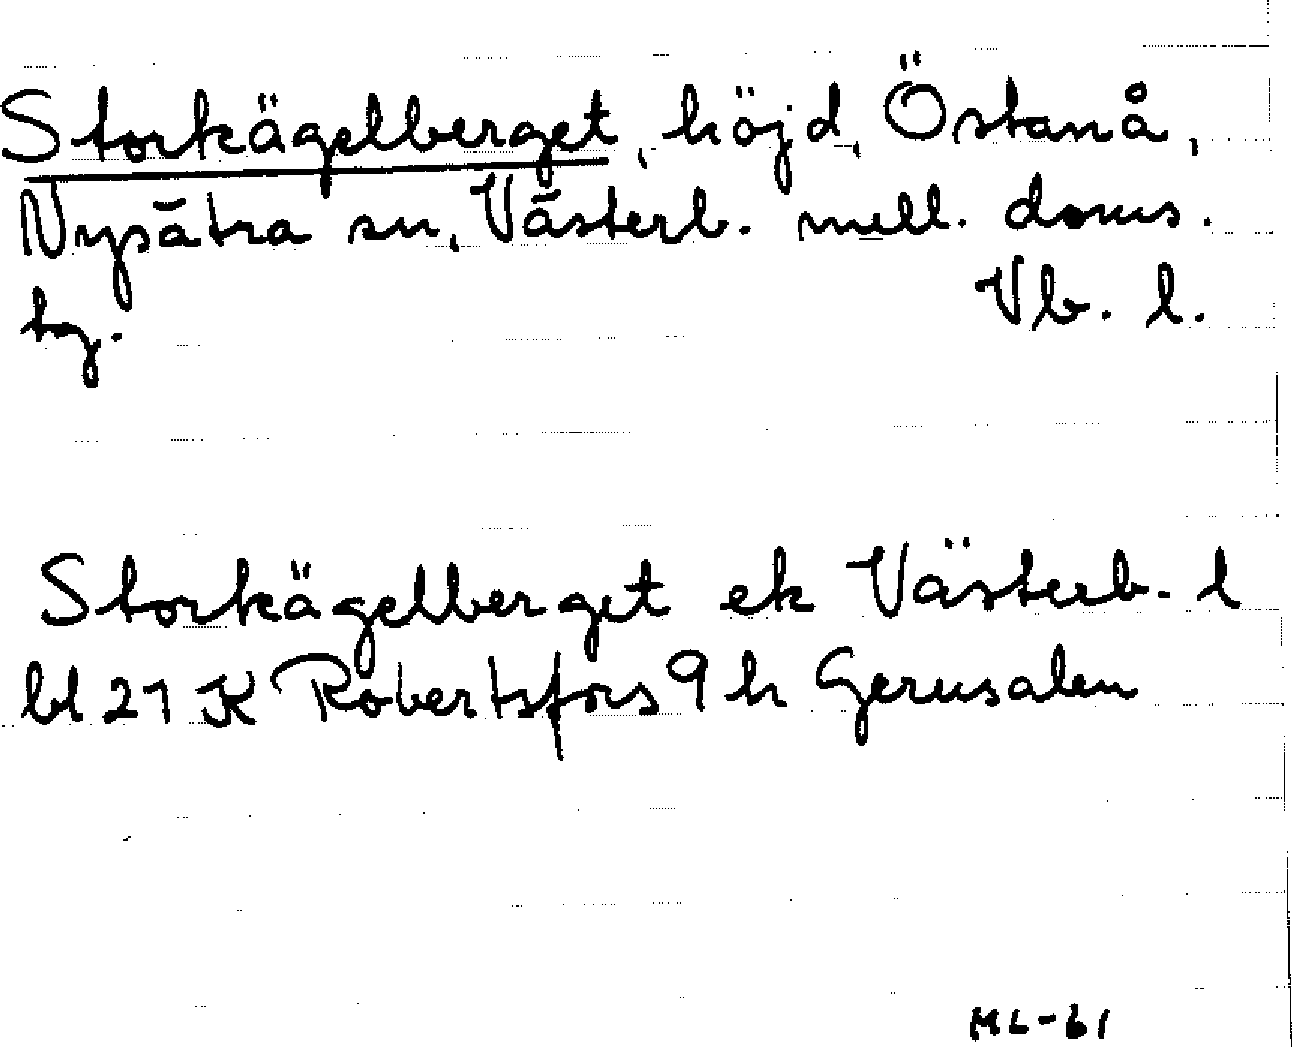 Storkägelberget, höjd, Östanå,
Nysätra sn, Västerb. mell. doms.
tg. Vb. l.
Storkägelberget ek Västerb. l
bl 21 K Robertsfors 9 h Gerusalem
ML-61